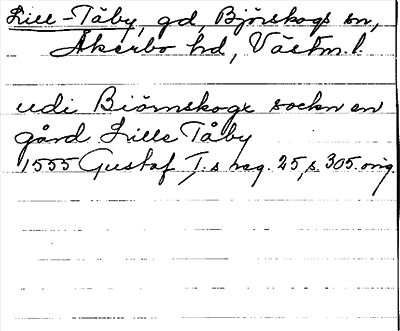 Lill-Tåby, gd, Björskogs sn,
Åkerbo hd, Västm. l.
udi Biörnskogx sockn en
gård Lille Tåby
1555 Gustaf I:s reg. 25, s. 305. orig.